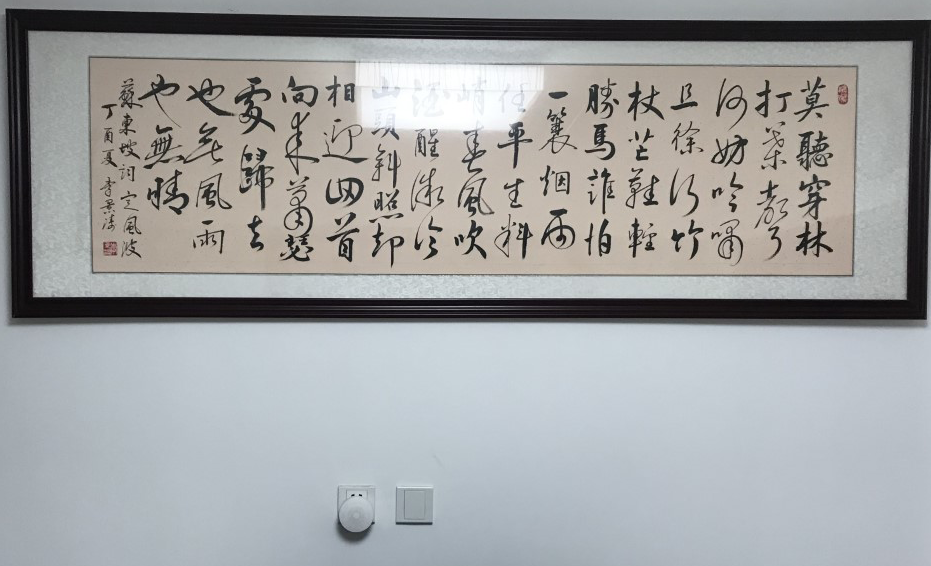 莫聽穿林
打葉聲
何妨吟嘯
且徐行竹
杖芒鞋輕
勝馬誰怕
一蓑烟雨
任平生料
峭春風吹
酒醒微冷
山頭斜照却
相迎回首
向來蕭瑟
處歸去
也無風雨
也無晴
蘇東坡詞定風波
丁酉夏李景濤